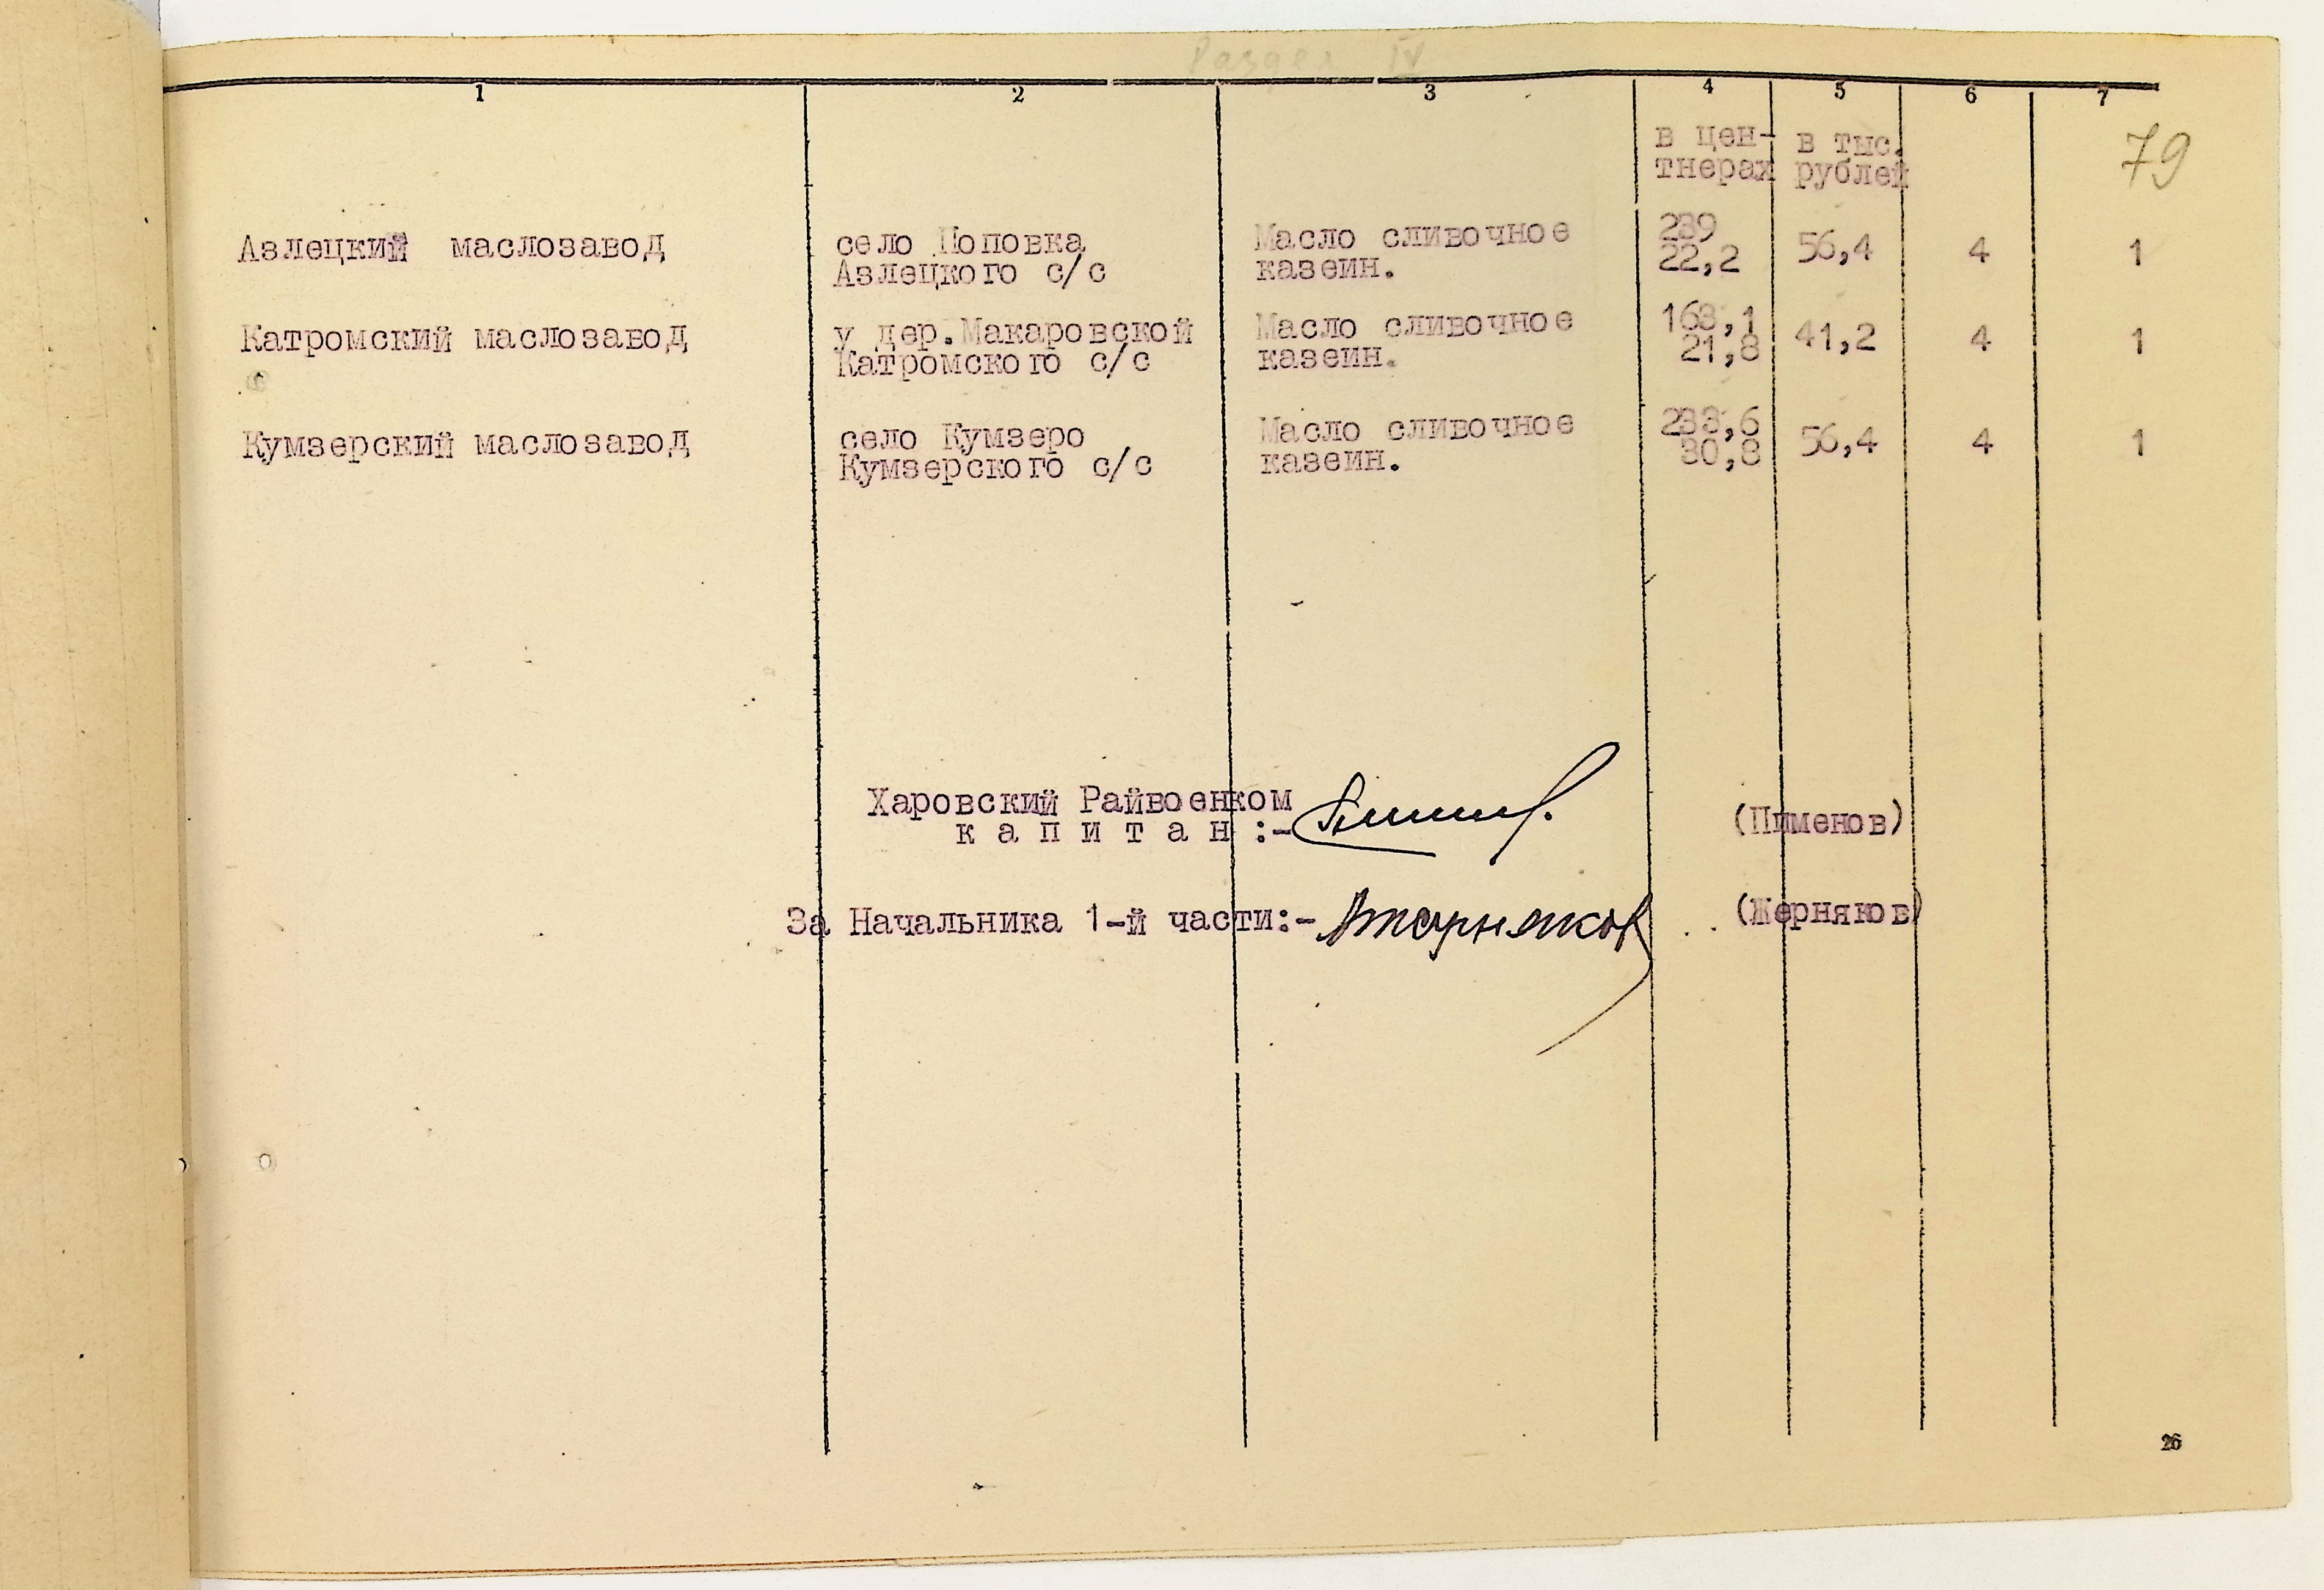 Раздел IV
1 2 3 4 5 6 7
79
в цен- в тыс.
тнерах рублей
Азлецкий маслозавод село Поповка Масло сливочное 239 56,4 4 1
Азлецкого с/с казеин. 22,2
Катромский маслозавод у дер.Макаровской Масло сливочное 163,1 41,2 4 1
Катромского с/с казеин. 21,8
Кумзерский маслозавод село Кумзеро Масло сливочное 233,6 56,4 4 1
Кумзерского с/с казеин. 30,8
Харовский Райвоенком (Пименов)
к а п и т а н :-
За Начальника 1-й части:- Жерняков (Жерняков)
26